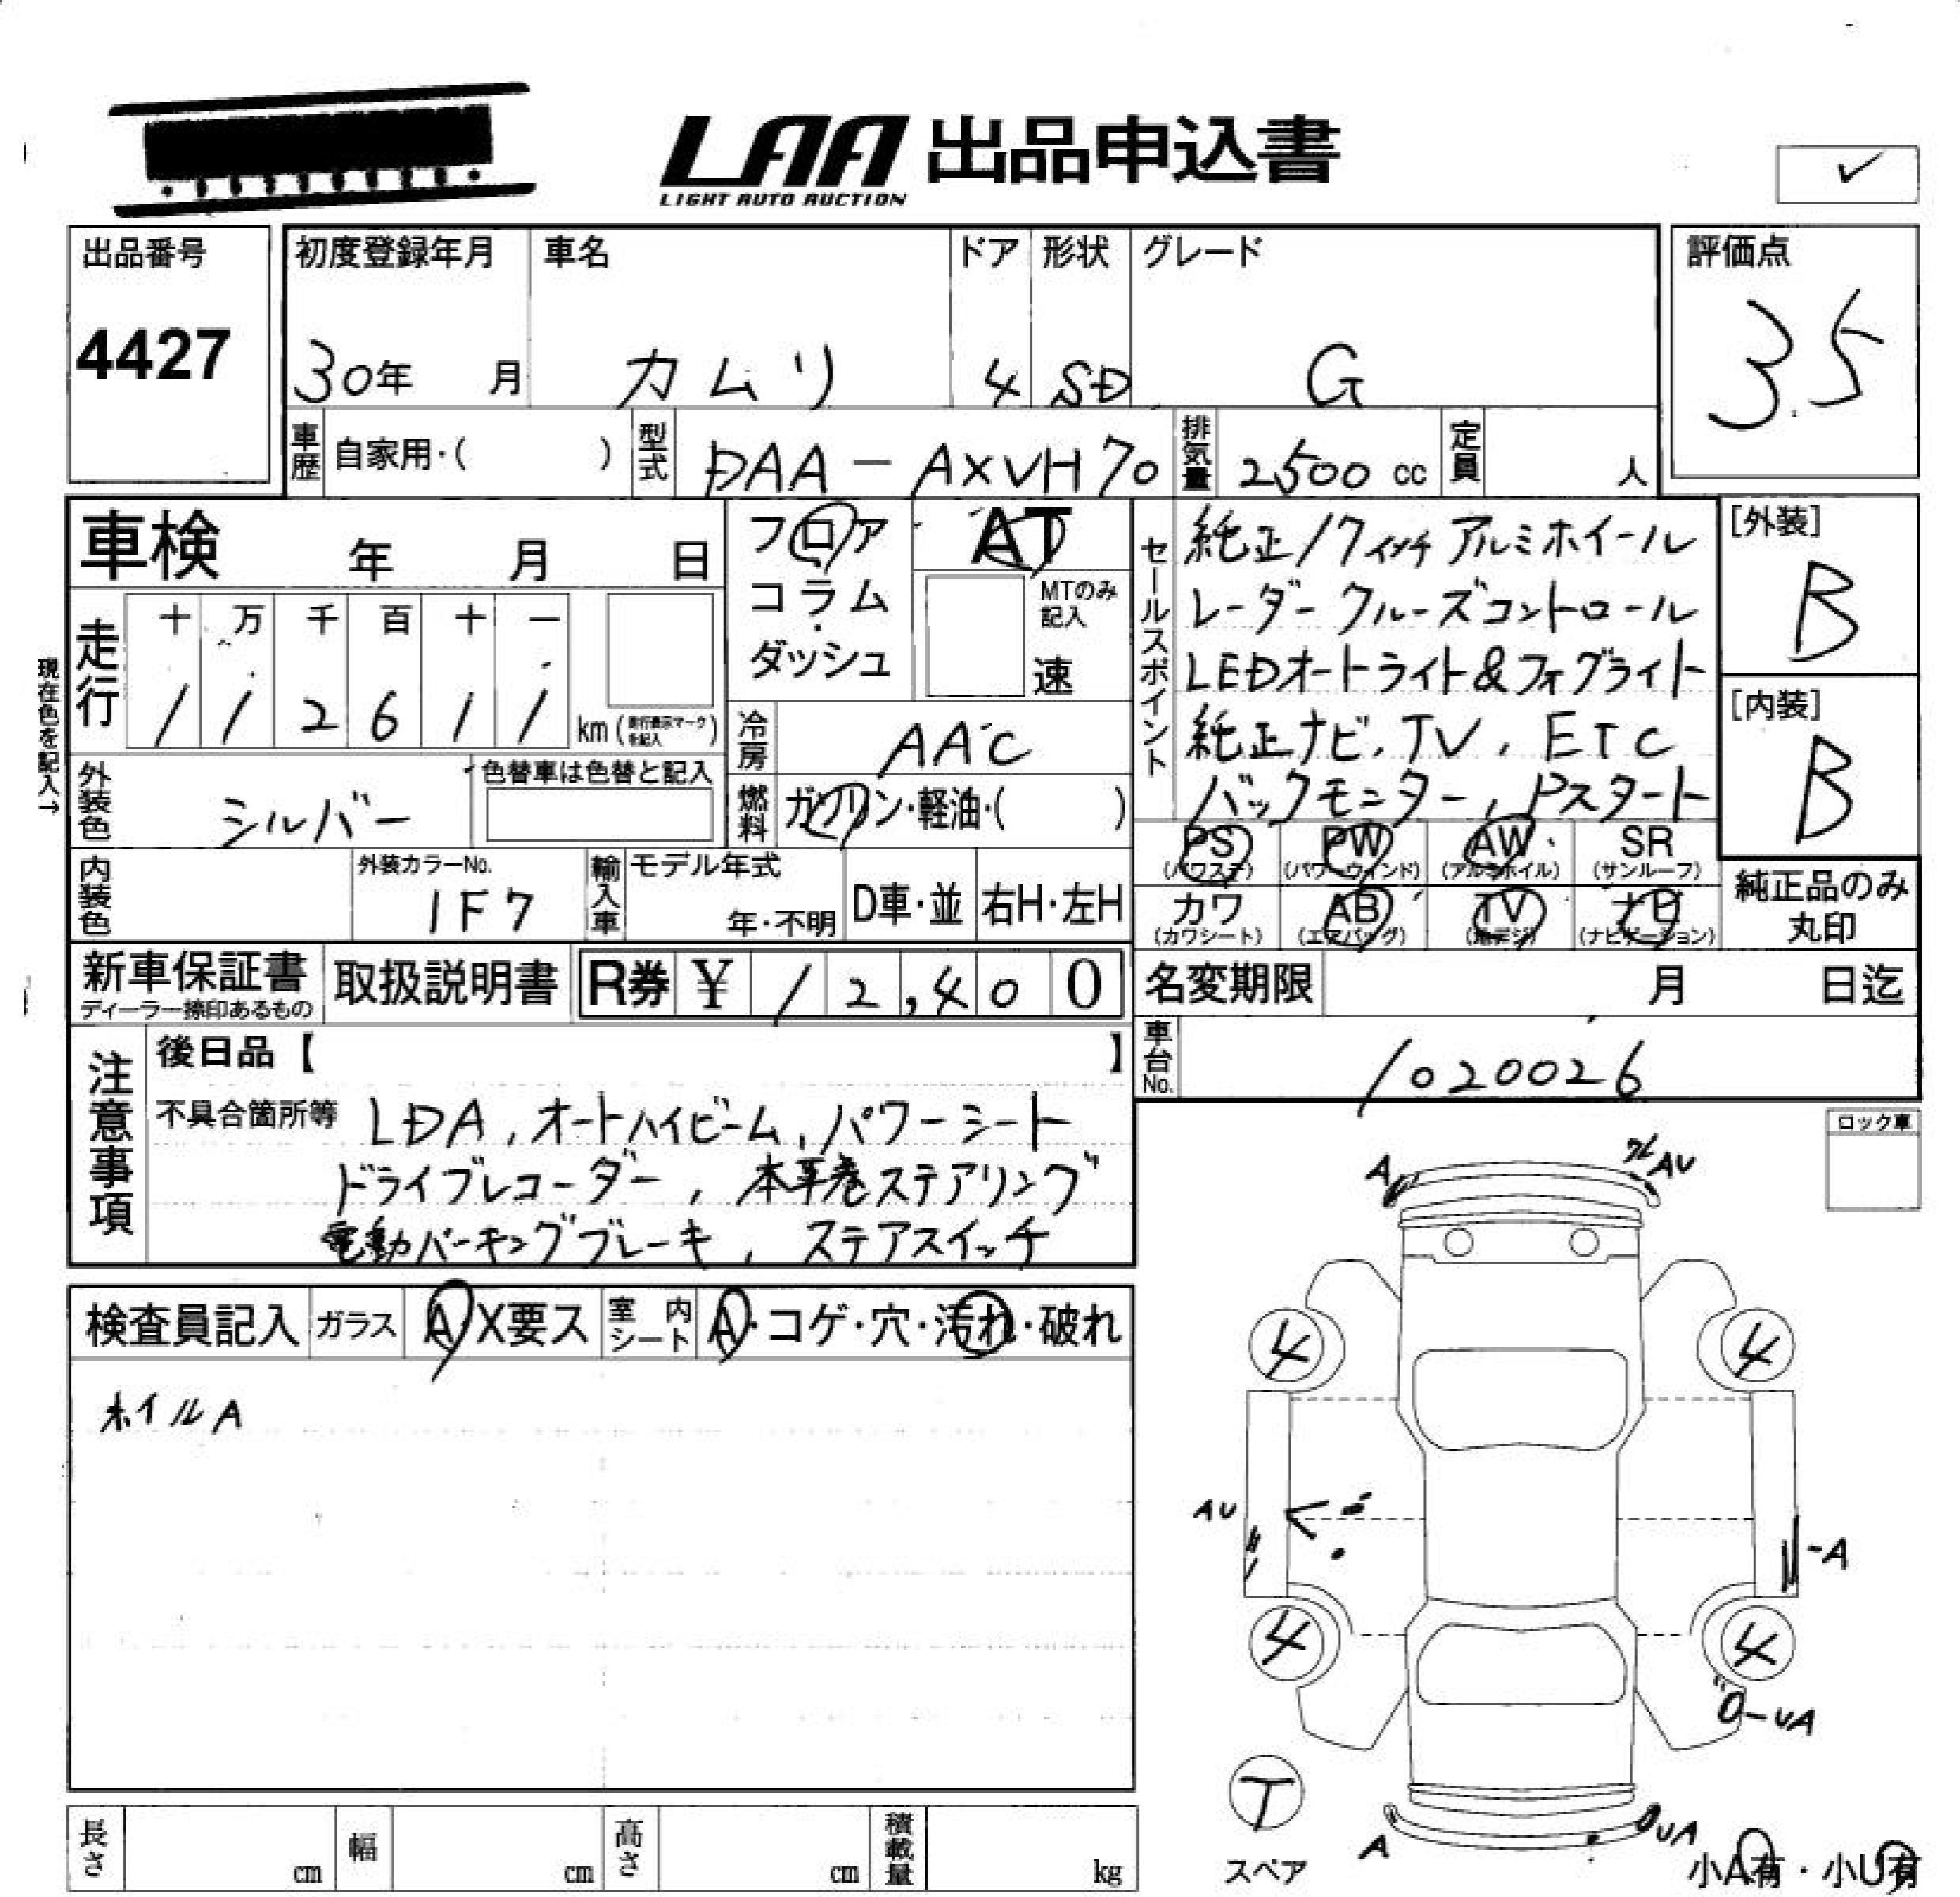 LAA 出品申込書
LIGHT AUTO AUCTION
✓
出品番号
4427
初度登録年月
30年 月
車名
カムリ
ドア
4
形状
SD
グレード
G
評価点
3.5
車歴 自家用・( )
型式 DAA-AXVH70
排気量 2500 cc
定員 人
車検 年 月 日
フロア
コラム
・
ダッシュ
AT
MTのみ
記入
速
セールスポイント
純正17インチアルミホイール
レーダークルーズコントロール
LEDオートライト&フォグライト
純正ナビ, TV, ETC
バックモニター, Pスタート
[外装]
B
[内装]
B
現在色を記入→
走行
十 万 千 百 十 一
1 1 2 6 1 1
km (走行表示マークを記入)
冷房 AAC
外装色 シルバー
色替車は色替と記入
燃料 ガソリン・軽油・( )
PS (パワステ)
PW (パワーウインド)
AW (アルミホイル)
SR (サンルーフ)
カワ (カワシート)
AB (エアバッグ)
TV (地デジ)
ナビ (ナビゲーション)
純正品のみ
丸印
内装色
外装カラーNo.
1F7
輸入車
モデル年式
年・不明
D車・並
右H・左H
新車保証書
ディーラー捺印あるもの
取扱説明書
R券 ¥ 12,400
名変期限 月 日迄
車台No. 1020026
注意事項
後日品【 】
不具合箇所等 LDA, オートハイビーム, パワーシート
ドライブレコーダー, 本革巻ステアリング
電動パーキングブレーキ, ステアスイッチ
ロック車
検査員記入
ガラス A・X要ス
室内シート A・コゲ・穴・汚れ・破れ
ホイルA
A
AU
4
4
AU
-A
4
4
UA
T
スペア
A
UA
小A有・小U有
長さ cm
幅 cm
高さ cm
積載量 kg